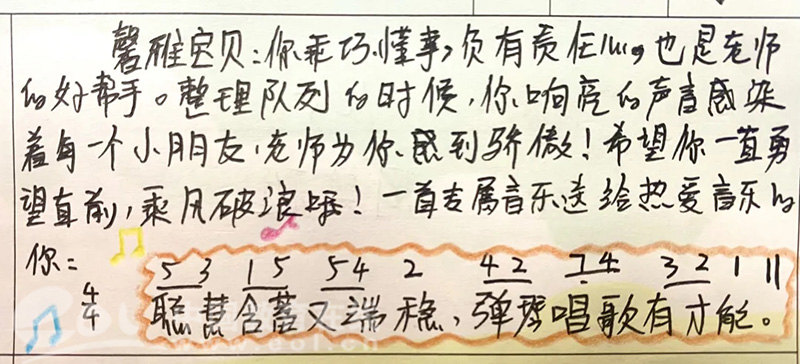 馨雅宝贝：你乖巧懂事，负有责任心，也是老师
的好帮手。整理队列的时候，你响亮的声音感染
着每一个小朋友，老师为你感到骄傲！希望你一直勇
望直前，乘风破浪哦！一首专属音乐送给热爱音乐的
你：
4/4 5 3 1 5 5 4 2 4 2 7 4 3 2 1 ||
聪慧含蓄又端稳，弹琴唱歌有才能。